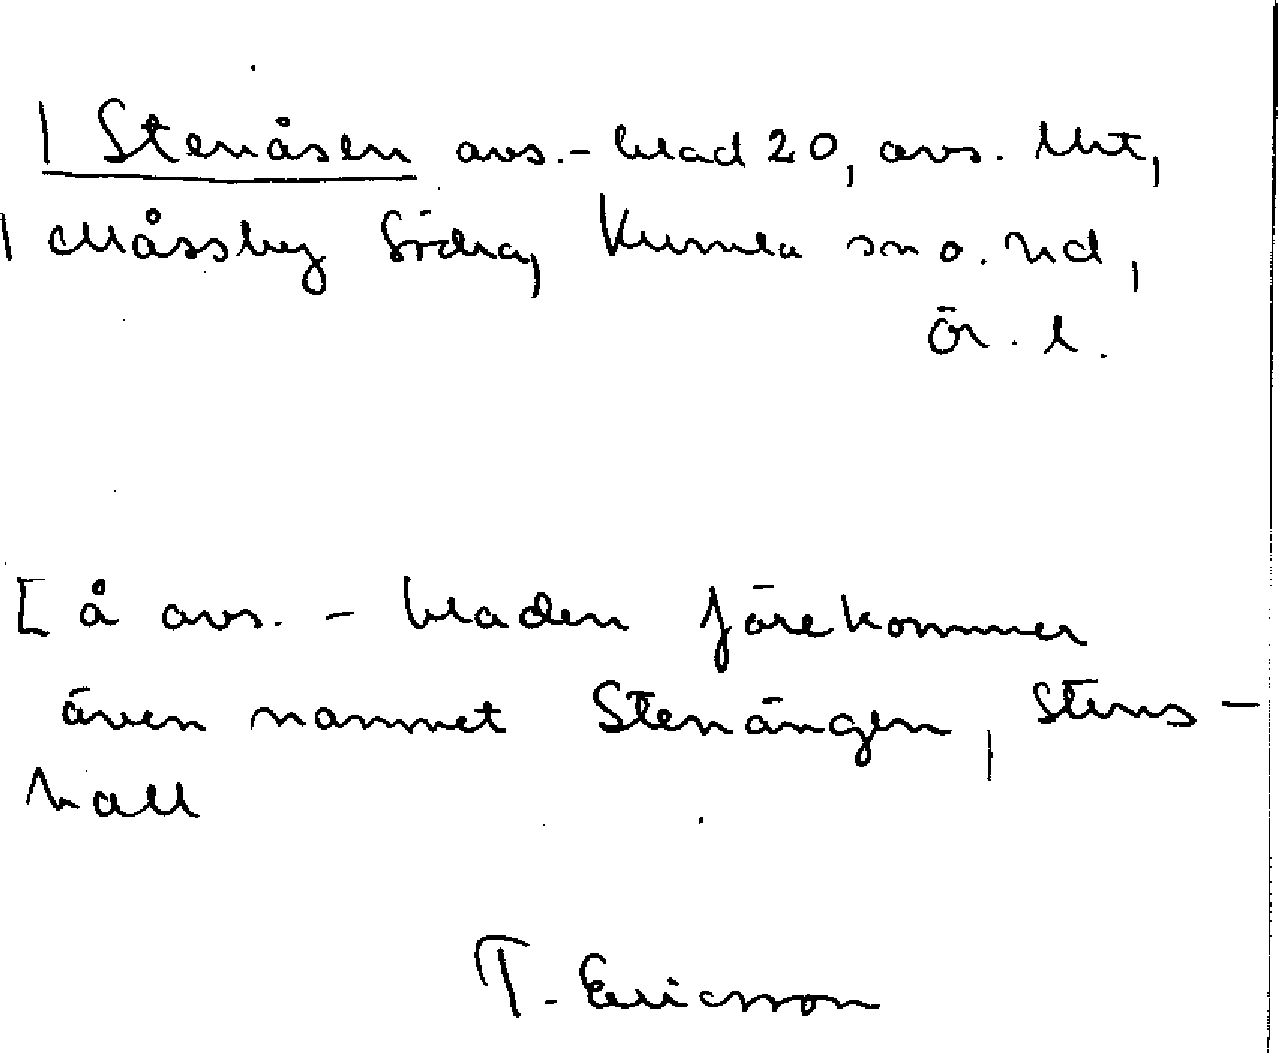 | Stenåsen avs.-blad 20, avs. lht,
| Måssby Södra, Kumla sn o. hd,
Ör. l.
[ å avs. - bladen förekommer
även namnet Stenängen, Stens-
hall
T. Ericsson